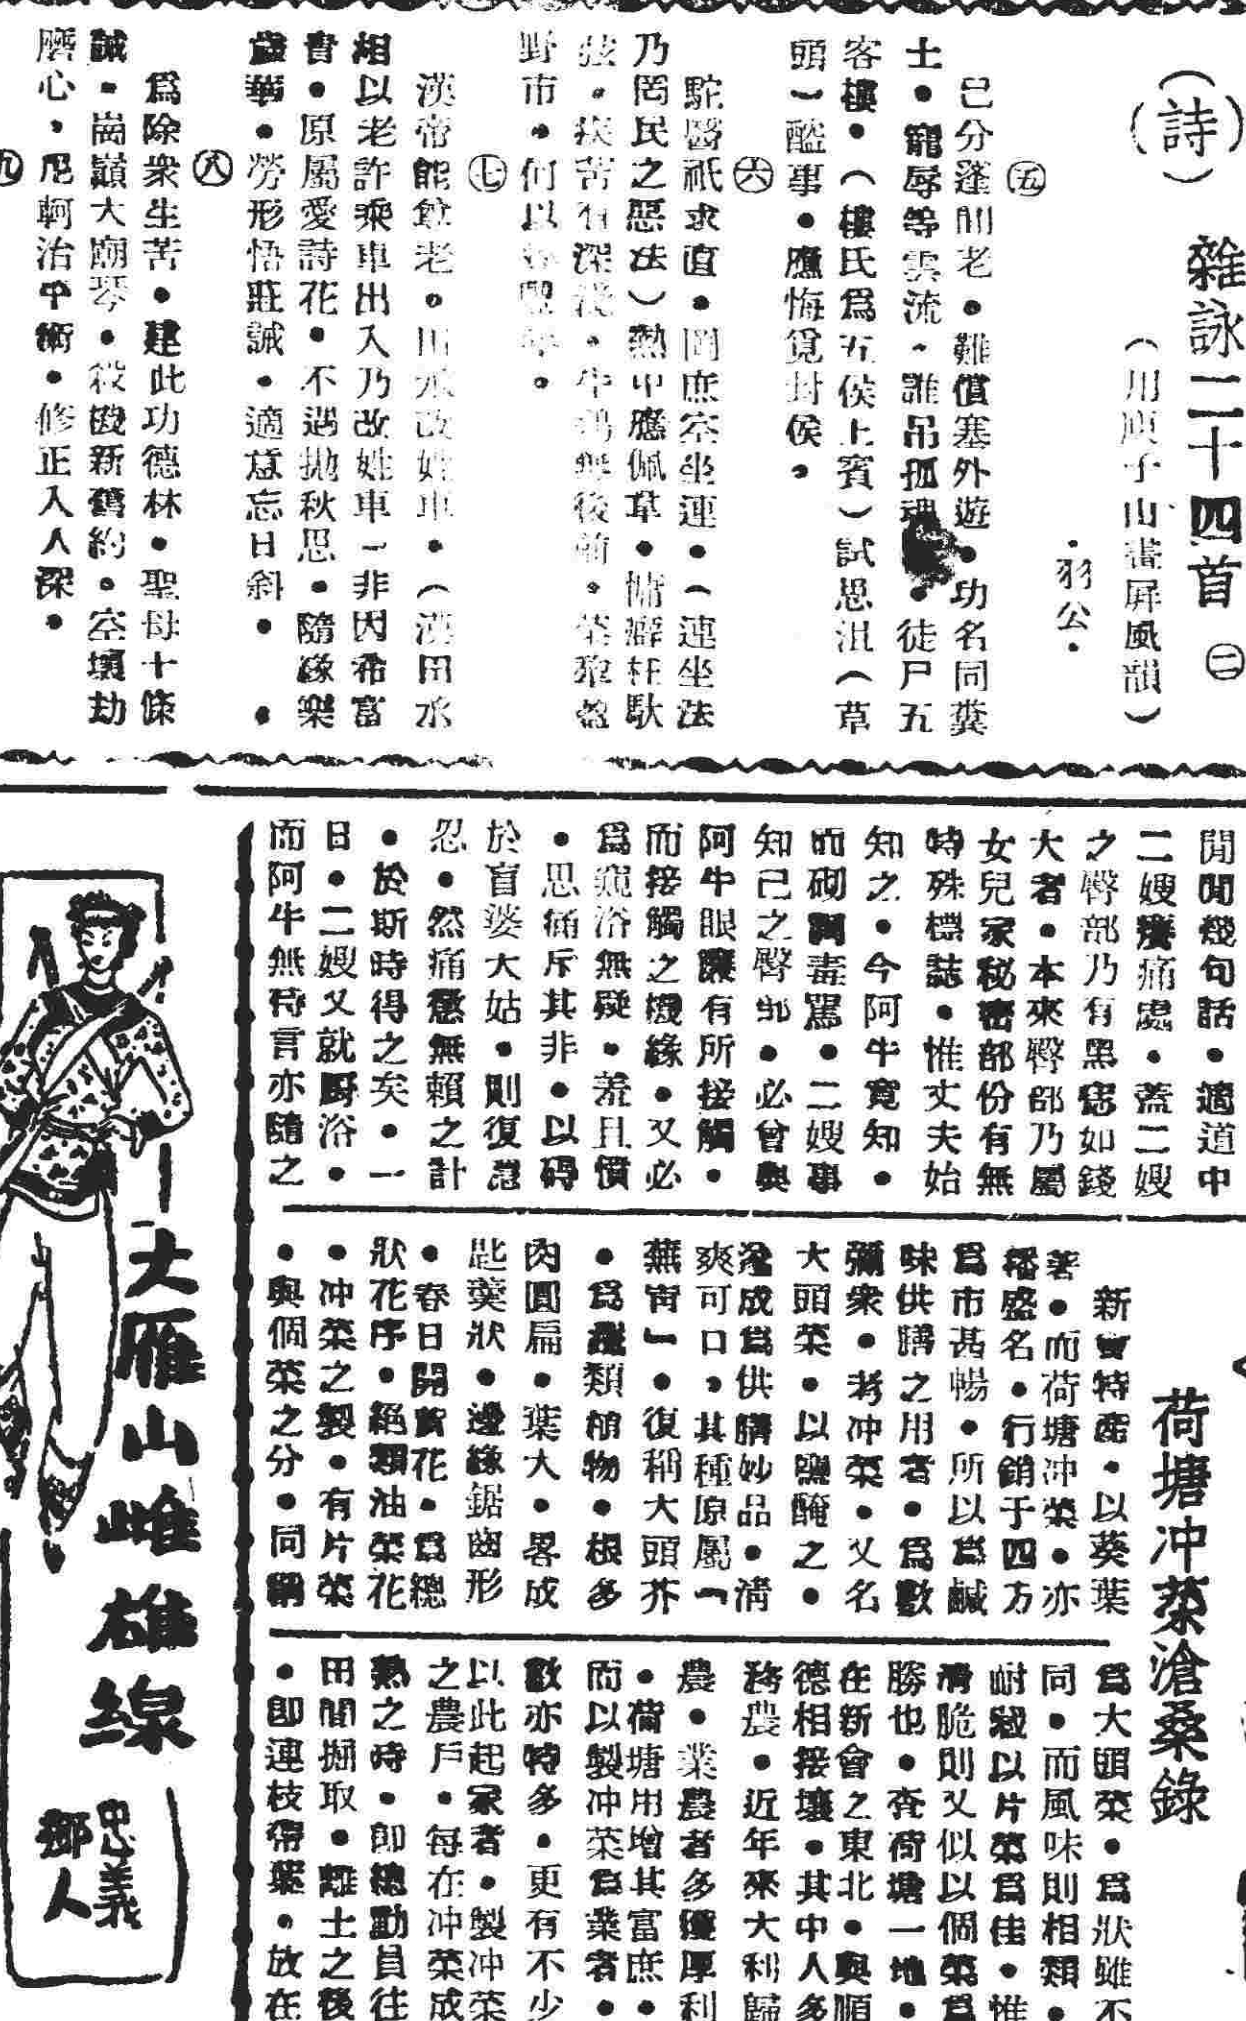 (詩)
雜詠二十四首 ㊁
(用庾子山畫屏風韻)
·羽公·
㊄
已分蓬間老●難償塞外遊●功名同糞
土●寵辱等雲流·誰吊孤魂●徒尸五
客樓●(樓氏爲五侯上賓)試思沮(草
頭)醢事●應悔覓封侯。
㊅
駝醫祇求直●罔庶容坐連●(連坐法
乃罔民之惡法)熱中應佩草●慵癖枉馱
疾苦有深淺
野市·何以
㊆
漢帝能 老。田水改姓車●(漢田水
相以老許乘車出入乃改姓車一非因希富
貴●原屬愛詩花●不遇拋秋思●隨緣樂
歲華●勞形悟莊誠●適意忘日斜●
㊇
爲除衆生苦●建此功德林●聖母十條
誠●崗巔大廟琴●役 新舊約●空墳劫
磨心·尼軻治平術●修正入人深●
㊈
聞聞幾句話●適道中
二嫂癢痛處●蓋二嫂
之臀部乃有黑痣如錢
大者●本來臀部乃屬
女兒家秘密部份有無
特殊標誌●惟丈夫始
知之●今阿牛竟知●
而砌詞毒罵●二嫂事
知己之臀部●必曾與
阿牛眼簾有所接觸●
而接觸之機緣●又必
爲窺浴無疑●羞且憤
●思痛斥其非●以碍
於盲婆大姑●則復忍
忍●然痛懲無賴之計
●於斯時得之矣●一
日●二嫂又就厨浴●
而阿牛無待言亦隨之
荷塘冲菜滄桑錄
新會特產●以葵葉
著●而荷塘冲菜●亦
播盛名●行銷于四方
爲市甚暢●所以爲鹹
味供膳之用者●爲數
彌衆●考冲菜●又名
大頭菜●以鹽醃之●
逐成爲供膳妙品●清
爽可口●其種原屬「
蕪菁」●復稱大頭芥
●爲蔬類植物●根多
肉圓扁●葉大●畧成
匙葉狀●邊緣鋸齒形
●春日開黃花●爲總
狀花序●絕類油菜花
●冲菜之製●有片菜
●與個菜之分●同稱
爲大頭菜●爲狀雖不
同●而風味則相類●
耐嚼以片菜爲佳●惟
滑脆則又似以個菜爲
勝也●查荷塘一地●
在新會之東北●與順
德相接壤●其中人多
務農●近年來大利歸
農●業農者多獲厚利
●荷塘用增其富庶●
而以製冲菜爲業者●
數亦特多●更有不少
以此起家者●製冲菜
之農戶●每在冲菜成
熟之時●即總動員往
田間掘取●離土之後
●即連枝帶葉●放在
大雁山雌雄線
忠義
鄉人